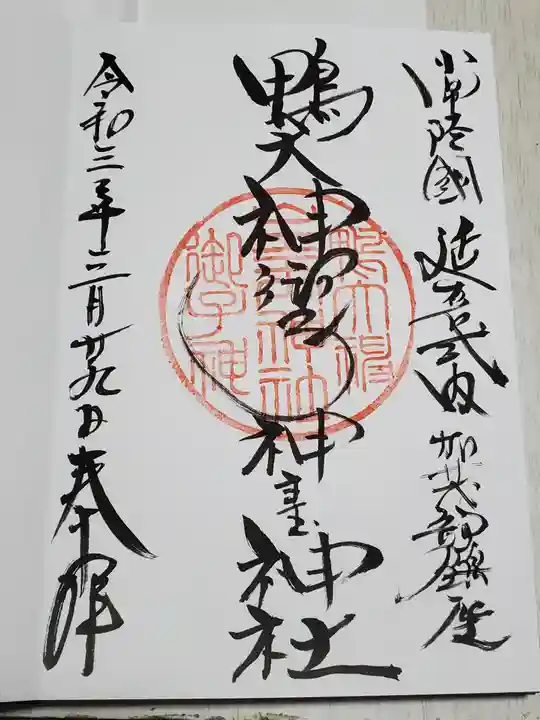 常陸國 延喜式内 加茂部鎮座
鴨大神御子神主玉神社
令和三年十二月廿九日奉拝
鴨大神
主玉神社
御子神